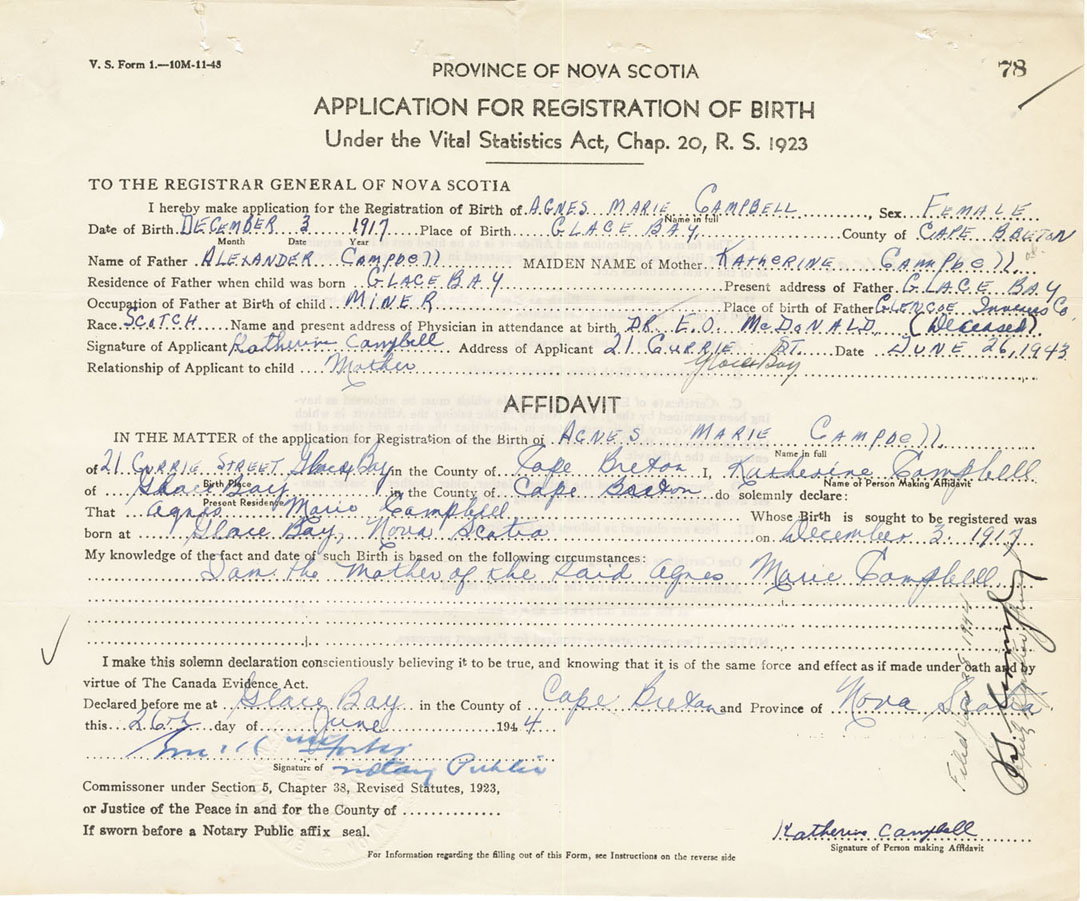 V. S. Form 1.—10M-11-43
PROVINCE OF NOVA SCOTIA
78
APPLICATION FOR REGISTRATION OF BIRTH
Under the Vital Statistics Act, Chap. 20, R. S. 1923
TO THE REGISTRAR GENERAL OF NOVA SCOTIA
I hereby make application for the Registration of Birth of AGNES MARIE CAMPBELL, Sex FEMALE
Name in full
Date of Birth DECEMBER 3 1917 Place of Birth GLACE BAY County of CAPE BRETON
Month Date Year
Name of Father ALEXANDER CAMPBELL MAIDEN NAME of Mother KATHERINE CAMPBELL
Residence of Father when child was born GLACE BAY Present address of Father GLACE BAY
Occupation of Father at Birth of child MINER Place of birth of Father GLENCOE Inverness Co.
Race SCOTCH Name and present address of Physician in attendance at birth DR. E.O. McDONALD (Deceased)
Signature of Applicant Katherine Campbell Address of Applicant 21 CURRIE ST. Date JUNE 26, 1943
Relationship of Applicant to child Mother Glace Bay
AFFIDAVIT
IN THE MATTER of the application for Registration of the Birth of AGNES MARIE CAMPBELL
Name in full
of 21 CURRIE STREET Glace Bay in the County of Cape Breton I, Katherine Campbell
Birth Place Name of Person Making Affidavit
of Glace Bay in the County of Cape Breton do solemnly declare:
Present Residence
That Agnes Marie Campbell Whose Birth is sought to be registered was
born at Glace Bay, Nova Scotia on December 3 1917
My knowledge of the fact and date of such Birth is based on the following circumstances:
I am the Mother of the said Agnes Marie Campbell
I make this solemn declaration conscientiously believing it to be true, and knowing that it is of the same force and effect as if made under oath and by
virtue of The Canada Evidence Act.
Declared before me at Glace Bay in the County of Cape Breton and Province of Nova Scotia
this 26th day of June 1944
Signature of Notary Public
Commissoner under Section 5, Chapter 38, Revised Statutes, 1923,
or Justice of the Peace in and for the County of
If sworn before a Notary Public affix seal.
Katherine Campbell
Signature of Person making Affidavit
For Information regarding the filling out of this Form, see Instructions on the reverse side